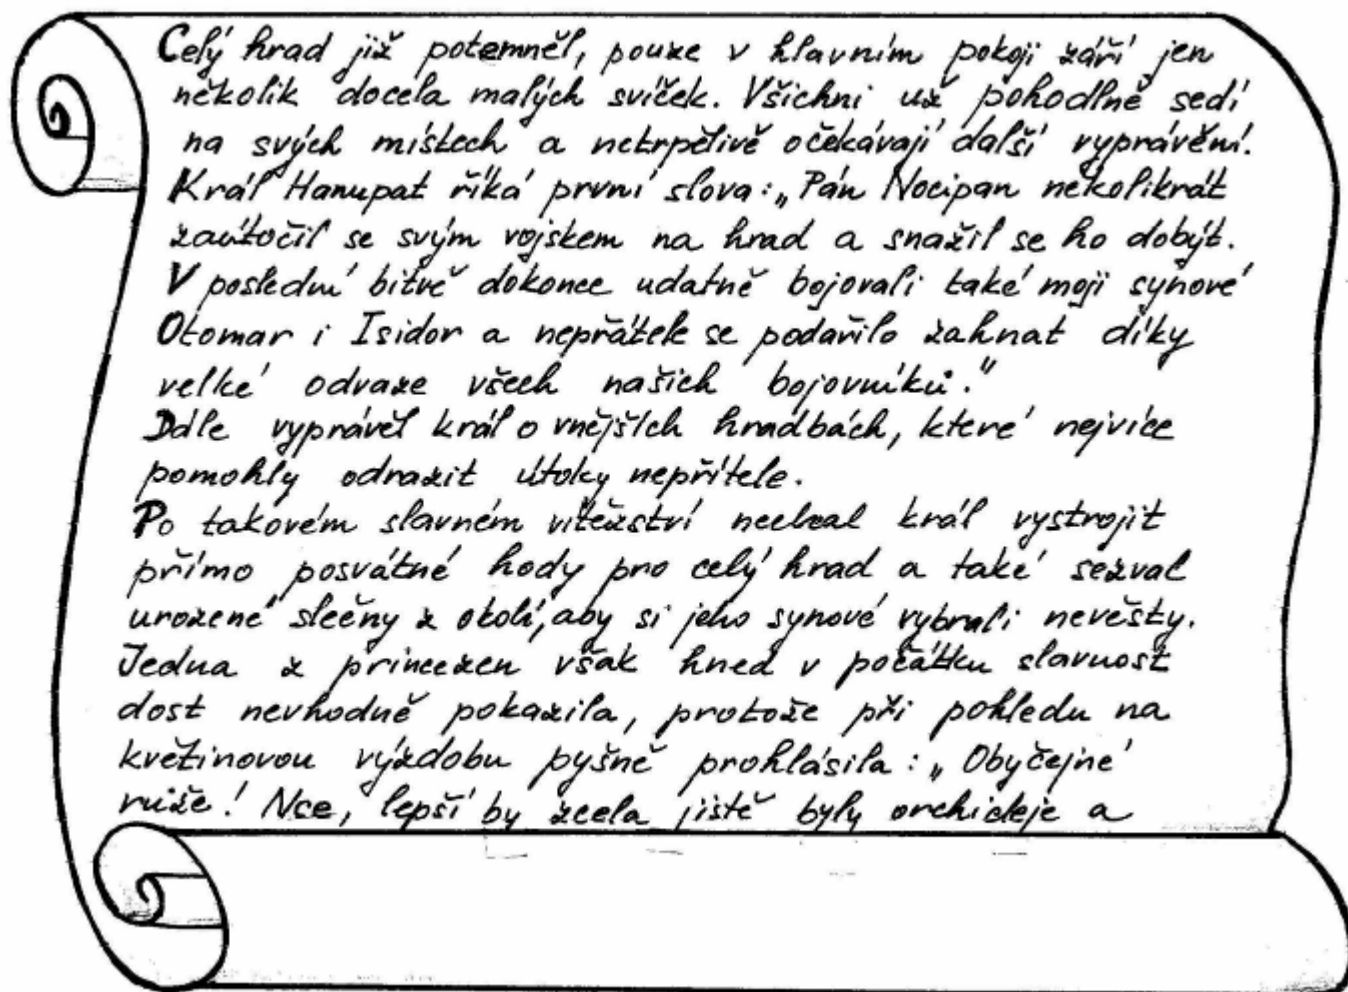 Celý hrad již potemněl, pouze v hlavním pokoji září jen
několik docela malých svíček. Všichni už pohodlně sedí
na svých místech a netrpělivě očekávají další vyprávění.
Král Hanupat říká první slova: „Pán Nocipan několikrát
zaútočil se svým vojskem na hrad a snažil se ho dobýt.
V poslední bitvě dokonce udatně bojovali také moji synové
Otomar i Isidor a nepřátele se podařilo zahnat díky
velké odvaze všech našich bojovníků."
Dále vyprávěl král o vnějších hradbách, které nejvíce
pomohly odrazit útoky nepřítele.
Po takovém slavném vítězství nechal král vystrojit
přímo posvátné hody pro celý hrad a také sezval
urozené slečny z okolí, aby si jeho synové vybrali nevěsty.
Jedna z princezen však hned v počátku slavnost
dost nevhodně pokazila, protože při pohledu na
květinovou výzdobu pyšně prohlásila: „Obyčejné
růže! Nce, lepší by zcela jistě byly orchideje a